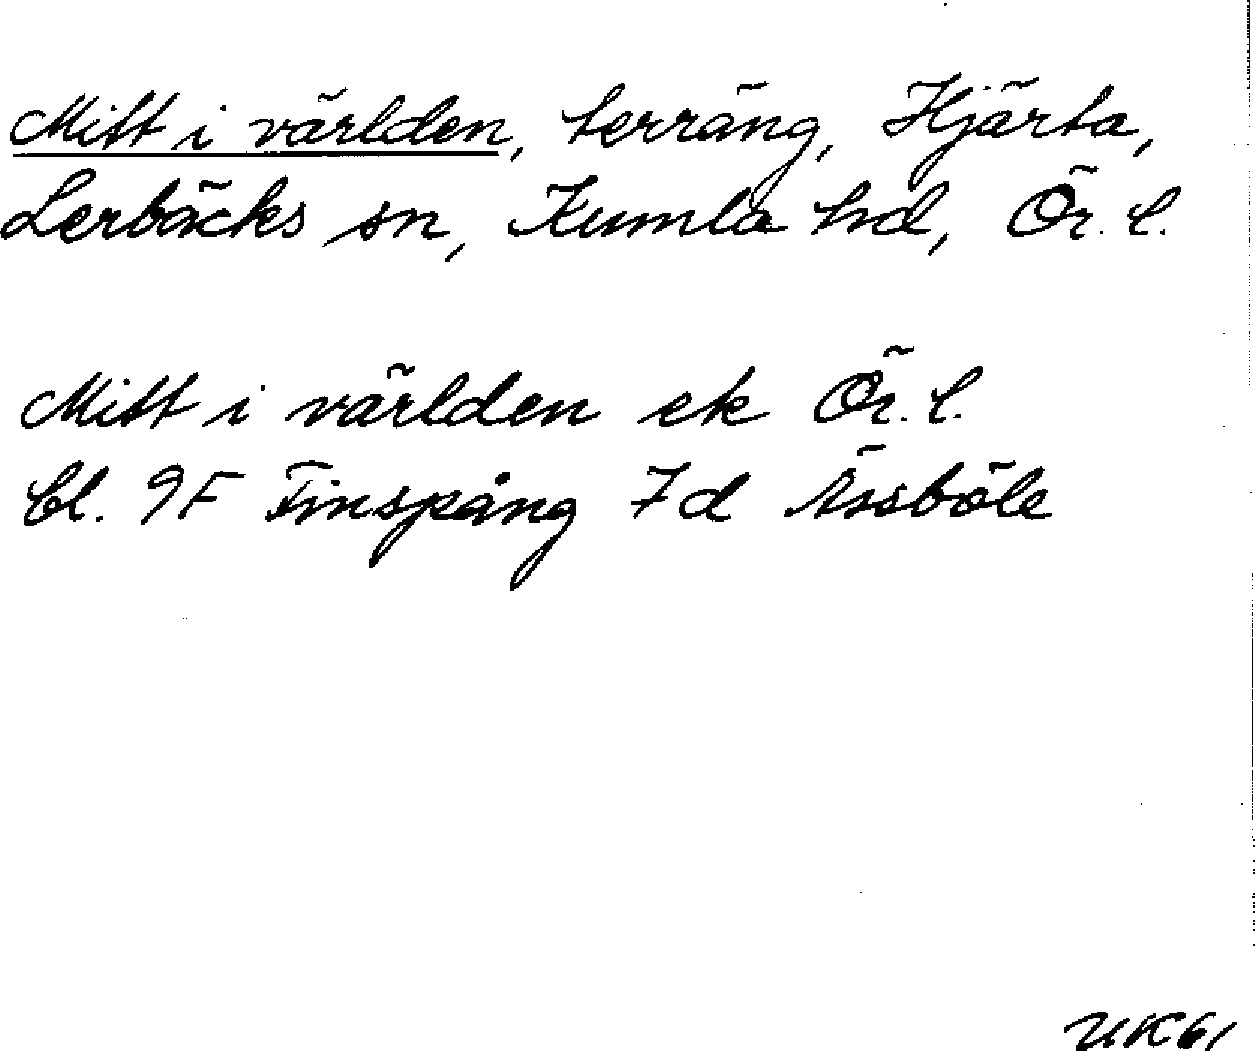 Mitt i världen, terräng, Hjärta,
Lerbäcks sn, Kumla hd, Ör. l.
Mitt i världen ek Ör. l.
bl. 9F Finspång 7d Åssböle
UK61